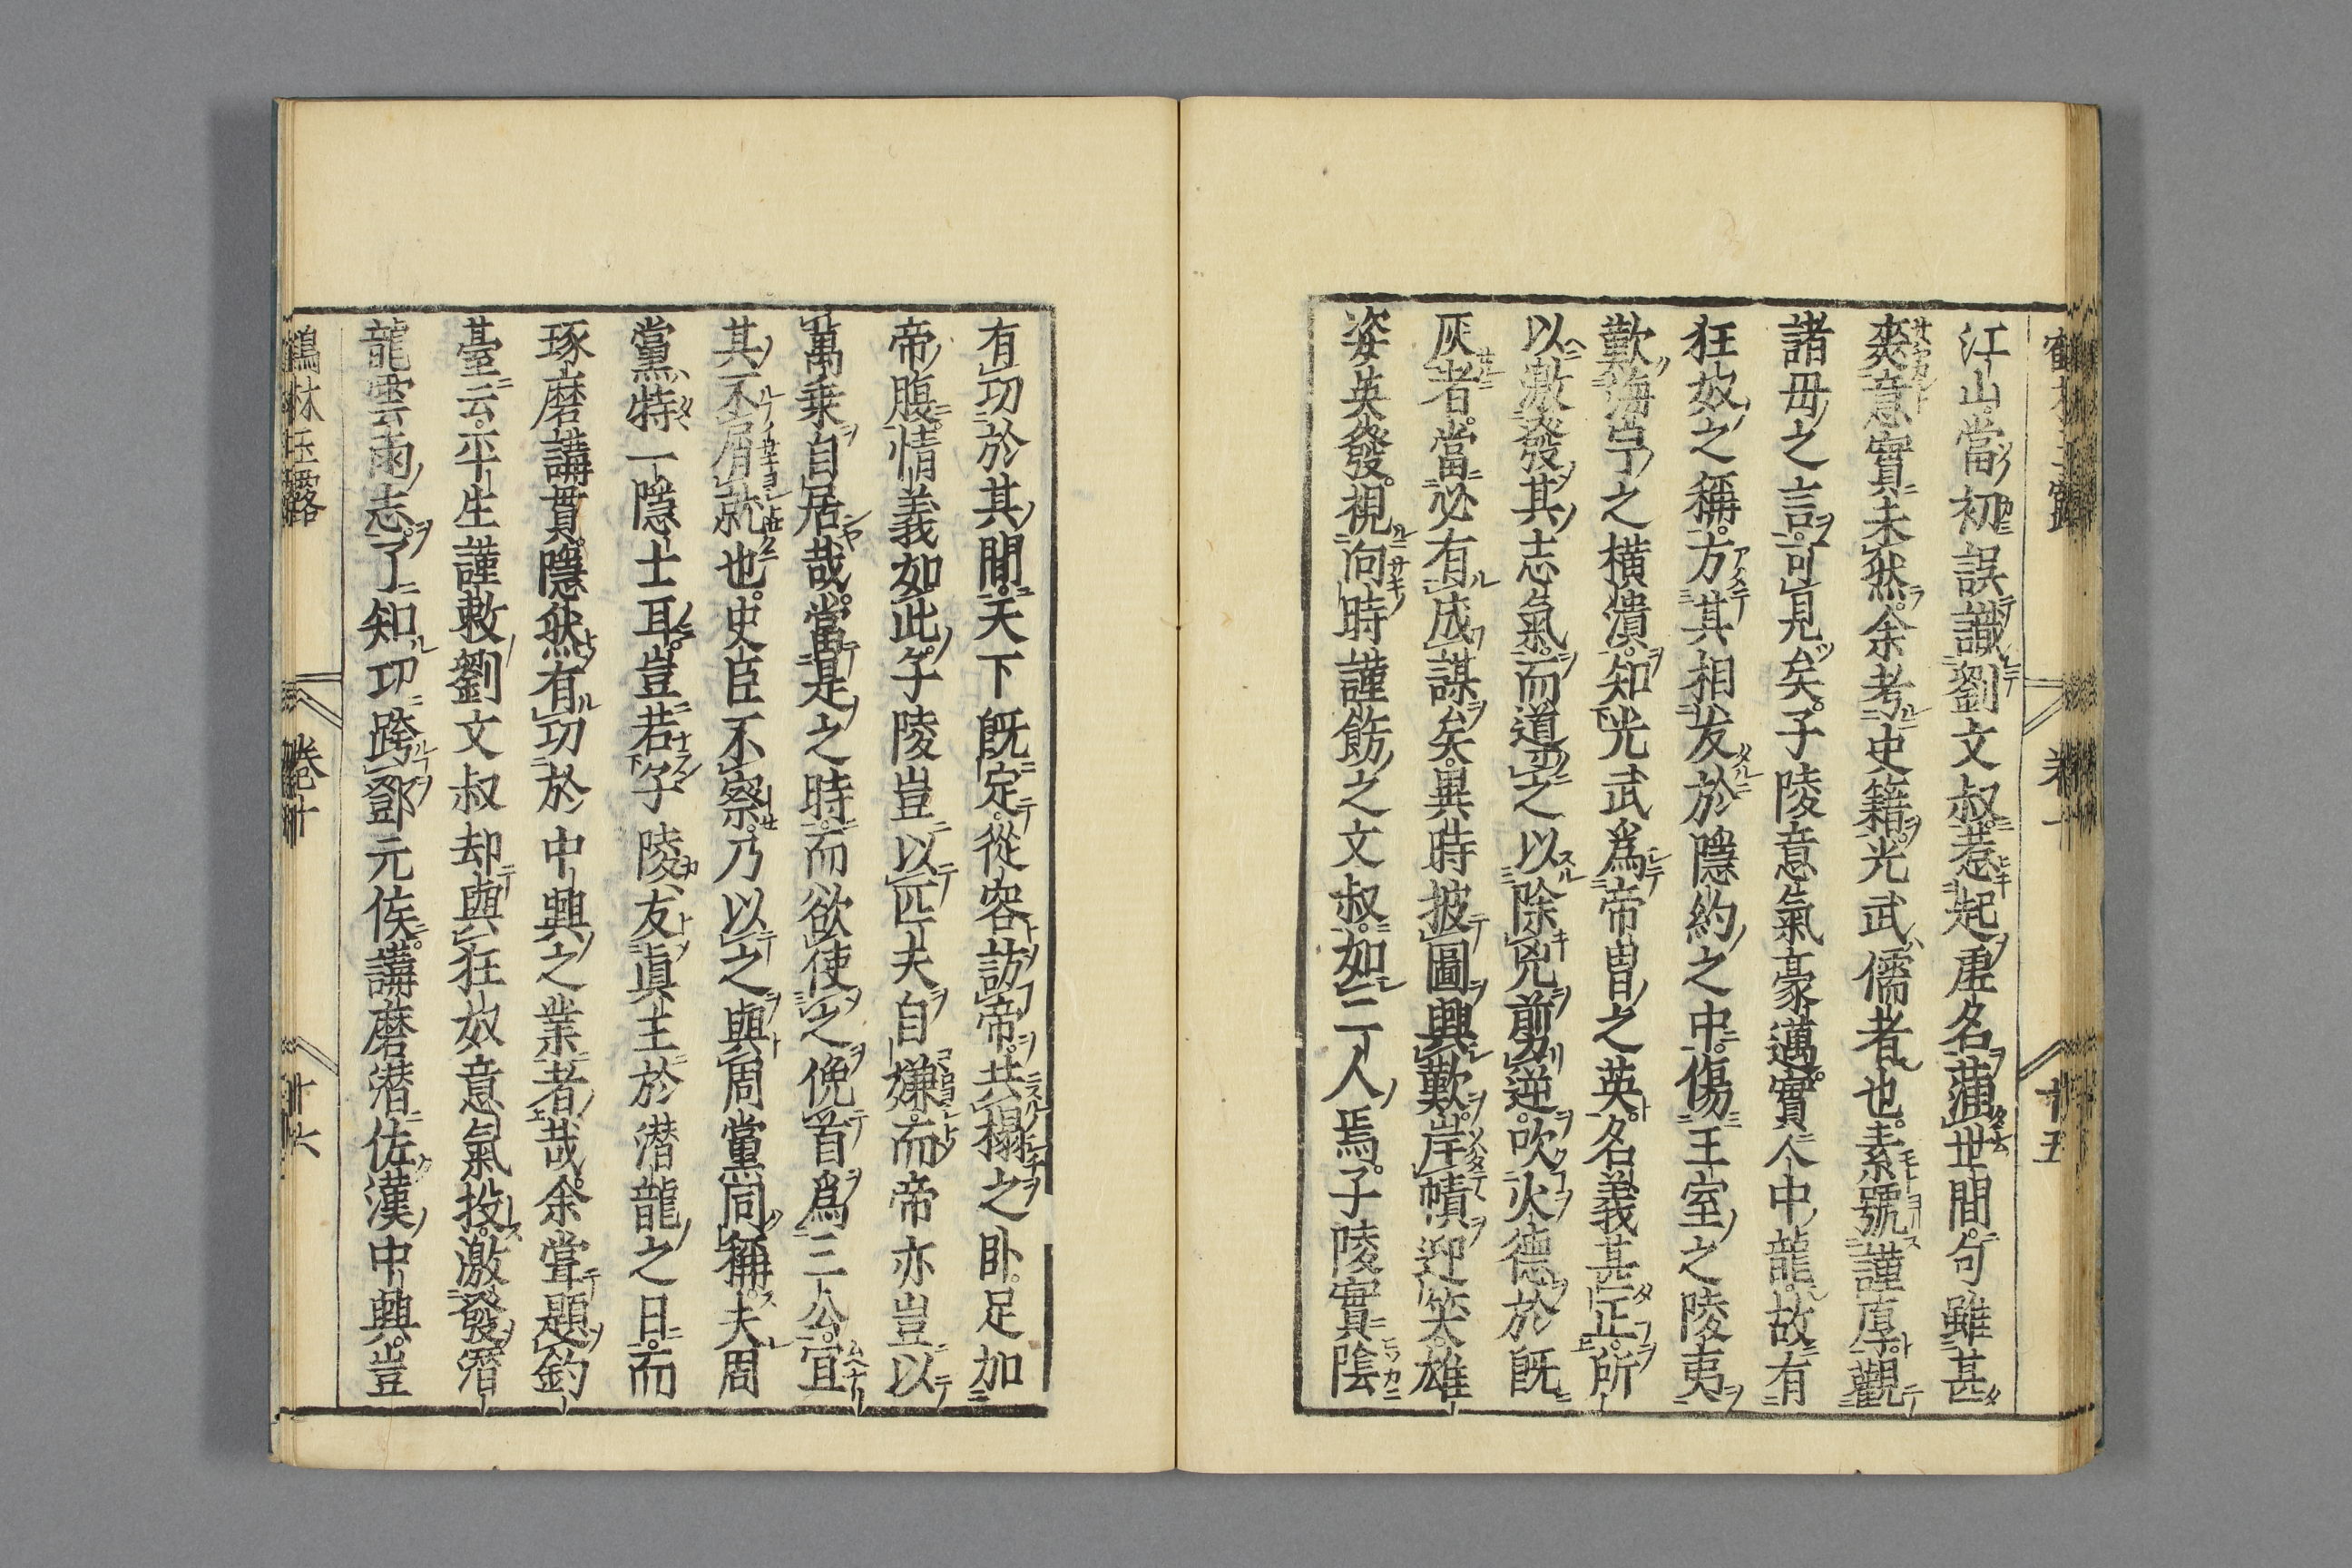 江山。當初誤識劉文叔。惹起虛名滿世間。句雖甚
爽。意實未然。余考史籍。光武儒者也。素號謹厚。觀
諸毋之言。可見矣。子陵意氣豪邁。實人中龍。故有
狂奴之稱。方其相友於隱約之中。傷王室之陵夷
歎海宇之橫潰。知光武爲帝冑之英。名義甚正。所
以激發其志氣。而道之以除兇剪逆。吹火德於既
灰者。當必有成謀矣。異時披圖興歎。岸幘迎笑。雄
姿英發。視向時謹飭之文叔。如二人焉。子陵實陰
有功於其間。天下既定。從容訪帝。共榻之卧。足加
帝腹。情義如此。子陵豈以匹夫自嫌。而帝亦豈以
萬乗自居哉。當是之時。而欲使之俛首爲三公。宜
其不屑就也。史臣不察。乃以之與周黨同稱。夫周
黨特一隱士耳。豈若子陵友眞主於潜龍之日。而
琢磨講貫。隱然有功於中興之業者哉。余嘗題釣
臺云。平生謹敕劉文叔却與狂奴意氣投。激發潜
龍雲雨志。了知功跨鄧元侯。講磨潜佐漢中興。豈
鶴林玉露　卷十　十六